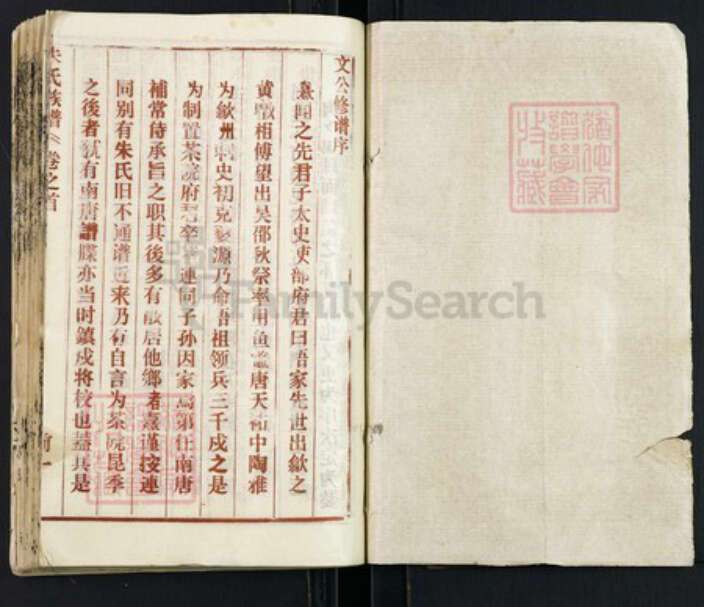 文公修谱序
熹闻之先君子太史吏部府君曰吾家先世出歙之
黄墩相傅望出吴郡秋祭率用鱼鳖唐天祐中陶雅
为歙州刺史初克婺源乃命吾祖领兵三千戍之是
为制置茶院府君卒 连同子孙因家焉第仕南唐
补常侍承旨之职其後多有散居他鄉者熹谨按連
同别有朱氏旧不通谱近来乃有自言为茶院昆季
之後者犹有南唐譜牒亦当时鎮戍将校也蓋其是
朱氏族谱 卷之首
FamilySearch